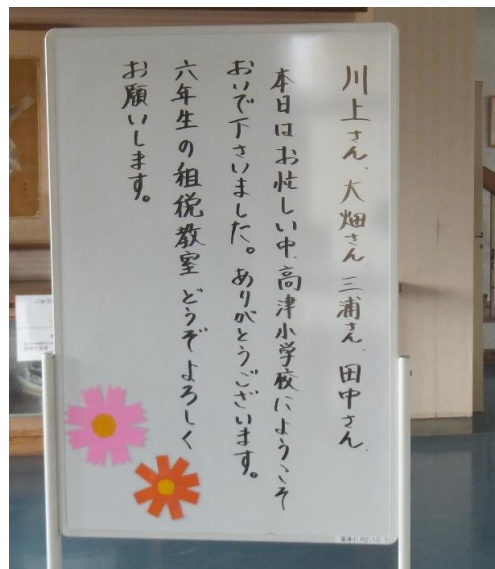 川上さん、大畑さん、三浦さん、田中さん、
本日はお忙しい中、高津小学校にようこそ
おいで下さいました。ありがとうございます。
六年生の租税教室どうぞよろしく
お願いします。